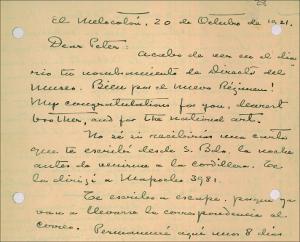 El Melocotón, 20 de Octubre de 1921.
Dear Peter:
Acabo de ver en el dia
rio tu nombramiento de Director del
Museo. Bien por el nuevo Régimen!
My congratulations for you, dearest
brother, and for the national art.
No sé si recibirías una carta
que te escribí desde S. Bdo. la noche
antes de venirme a la cordillera. Te
la dirijí a Mapocho 3981.
Te escribo a escape, porque ya
van a llevarse la correspondencia al
correo. Permaneceré aquí unos 8 días